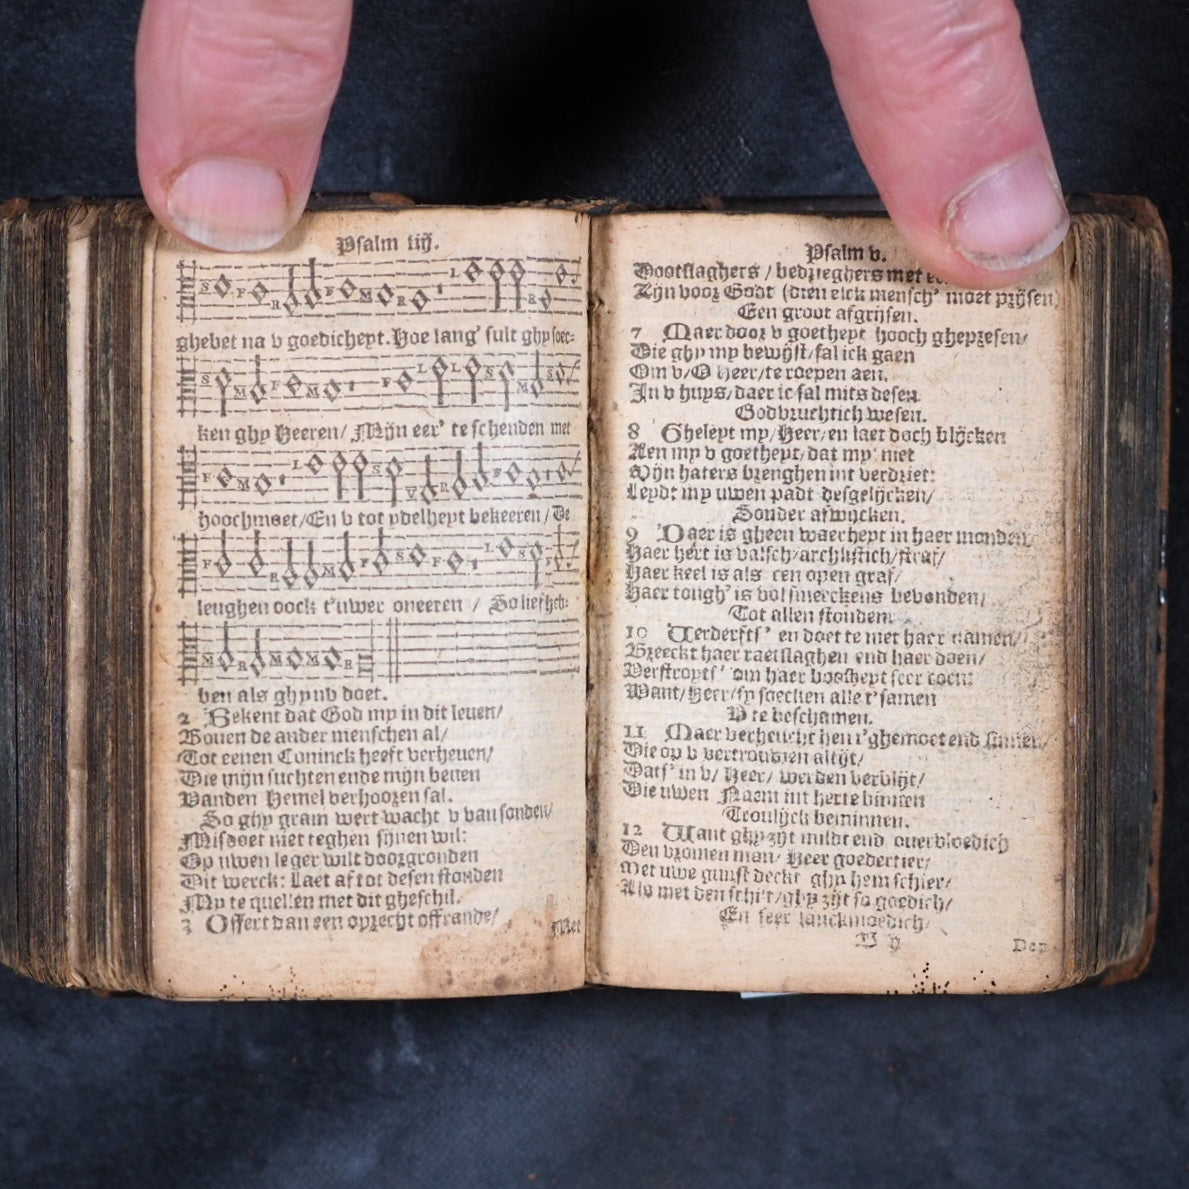 Psalm iiij.
ghebet na v goedicheyt. Hoe lang' sult ghy soec-
ken ghy Heeren/ Mijn eer' te schenden met
hoochmoet/ En v tot ydelheyt bekeeren/ De
leughen oock t'uwer oneeren / So lief heb-
ben als ghy nv doet.
2 Bekent dat God my in dit leuen/
Bouen de ander menschen al/
Tot eenen Coninck heeft verheuen/
Die mijn suchten ende mijn beuen
Vanden Hemel verhooren sal.
So ghy gram wert wacht v van sonden/
Misdoet niet teghen sijnen wil:
Op uwen leger wilt doorgronden
Dit werck: Laet af tot desen stonden
My te quellen met dit gheschil.
3 Offert dan een oprecht offrande/
Met
Psalm v.
Dootslaghers / bedrieghers met
Zijn voor Godt (dien elck mensch' moet prijsen)
Een groot afgrijsen.
7 Maer door v goetheyt hooch ghepresen/
Die ghy my bewijst/ sal ick gaen
Om v/ O Heer/ te roepen aen.
In v huys/ daer ic sal mits desen
Godvruchtich wesen.
8 Gheleyt my/ Heer/ en laet doch blijcken
Aen my v goetheyt/ dat my niet
Mijn haters brenghen int verdriet:
Leydt my uwen padt desgelijcken/
Sonder afwijcken.
9 Daer is gheen waerheyt in haer monden/
Haer hert is valsch/ archlistich/ straf/
Haer keel is als een open graf/
Haer tongh' is vol smeerckens bevonden/
Tot allen stonden.
10 Verderfts' en doet te niet haer namen/
Breeckt haer raetslaghen end haer doen/
Verstroyts' om haer boosheyt seer coen:
Want/ Heer/ sy soecken alle t'samen
V te beschamen.
11 Maer verheucht hen t'ghemoet end sinnen/
Die op v vertrouwen altijt/
Dats' in v/ Heer/ werden verblijt/
Die uwen Naem int herte binnen
Trouljick beminnen.
12 Want ghy zijt mildt end overvloedich
Den vromen man/ Heer goedertier/
Met uwe gunst deckt ghy hem schier/
Als met den schilt/ ghy zijt so goedich/
En seer lanckmoedich/
B ij
Dep